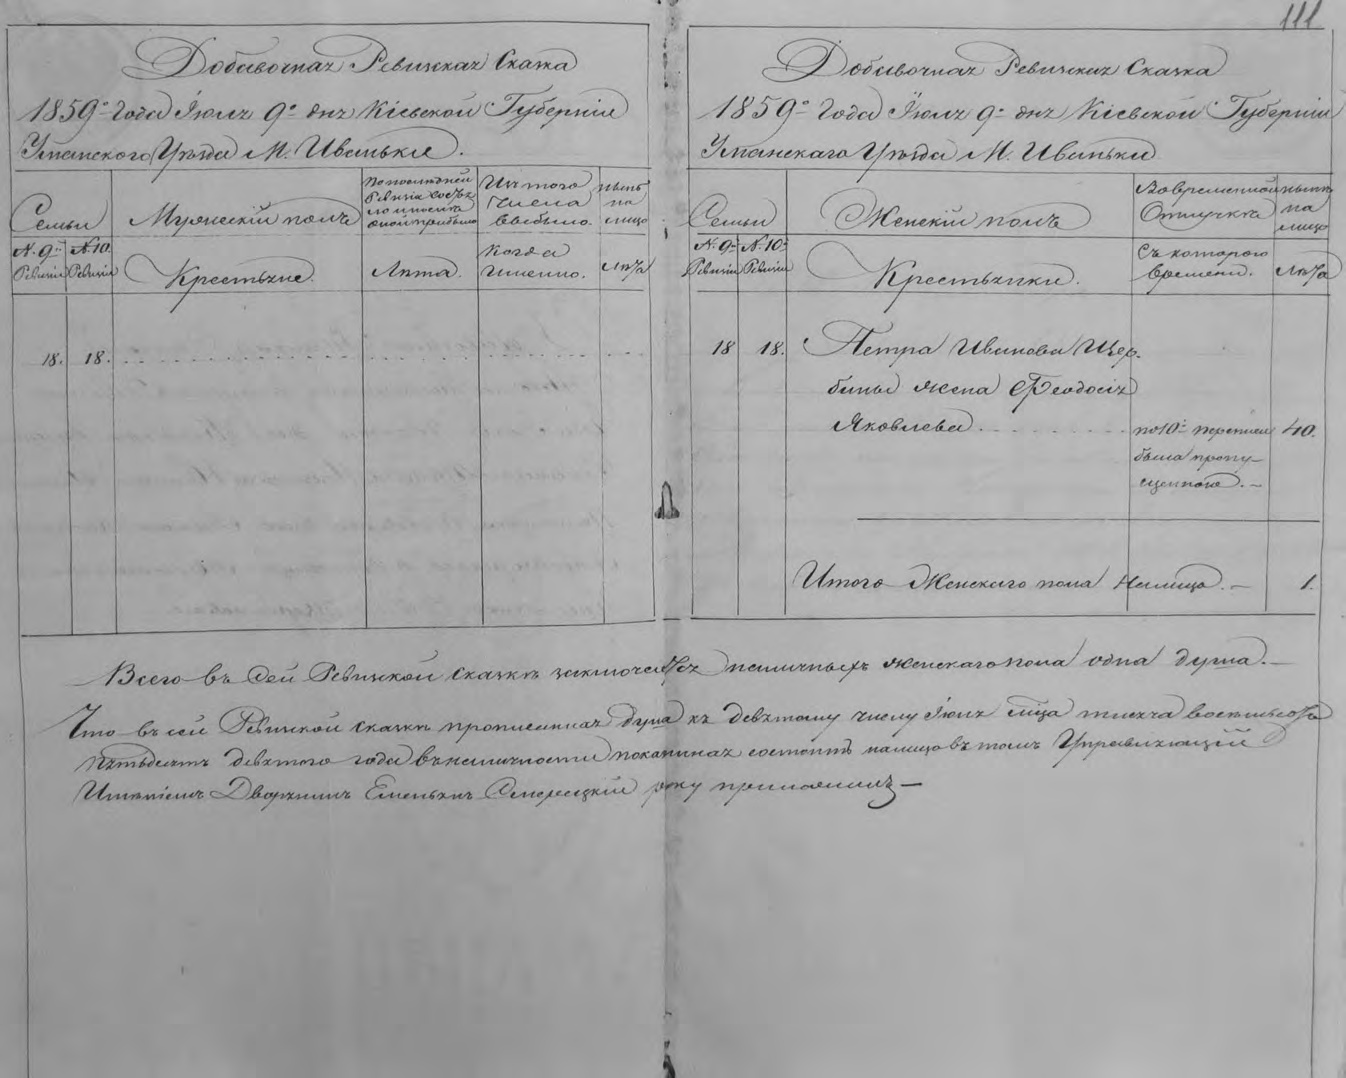 111
Добавочная Ревизская Сказка
1859го Года Июля 9го дня Кіевской Губерніи
Уманского Уѣзда М. Иваньки.
Семьи
№ 9й Ревизіи
№ 10й Ревизіи
Мужескій полъ
Крестьяне.
По послѣдней
Ревизіи состоя-
ло и послѣ
оной прибыло
Лѣта.
Изъ того
числа
выбыло.
Когда
именно.
нынѣ
на
лицо
Лѣта
18. 18.
Добавочная Ревизская Сказка
1859го Года Июля 9го дня Кіевской Губерніи
Уманскаго Уѣзда М. Иваньки
Семьи
№ 9й Ревизіи
№ 10й Ревизіи
Женскій полъ
Крестьянки.
Во временной
Отлучкѣ
Съ котораго
времени.
нынѣ
на
лицо
Лѣта
18 18. Петра Иванова Щер-
бины жена Феодосія
Яковлева по 10й переписи 40.
была пропу-
щенною.
Итого Женскаго пола Налицо. 1.
Всего въ сей Ревизской Сказкѣ заключается наличныхъ женскаго пола одна душа.
Что въ сей Ревизской сказкѣ прописанная душа къ девятому числу Июля мѣсяца тысяча восемьсотъ
пятьдесятъ девятого года въ наличности показанная состоитъ налицо въ томъ Управляющій
Имѣніемъ Дворянинъ руку приложилъ